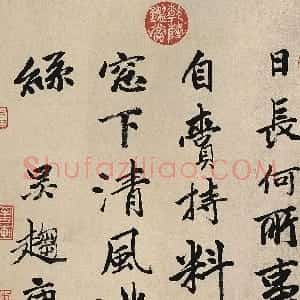 日長何所事
自賫持料
窓下清風
絲
吳趨唐
Shufaziliao.com